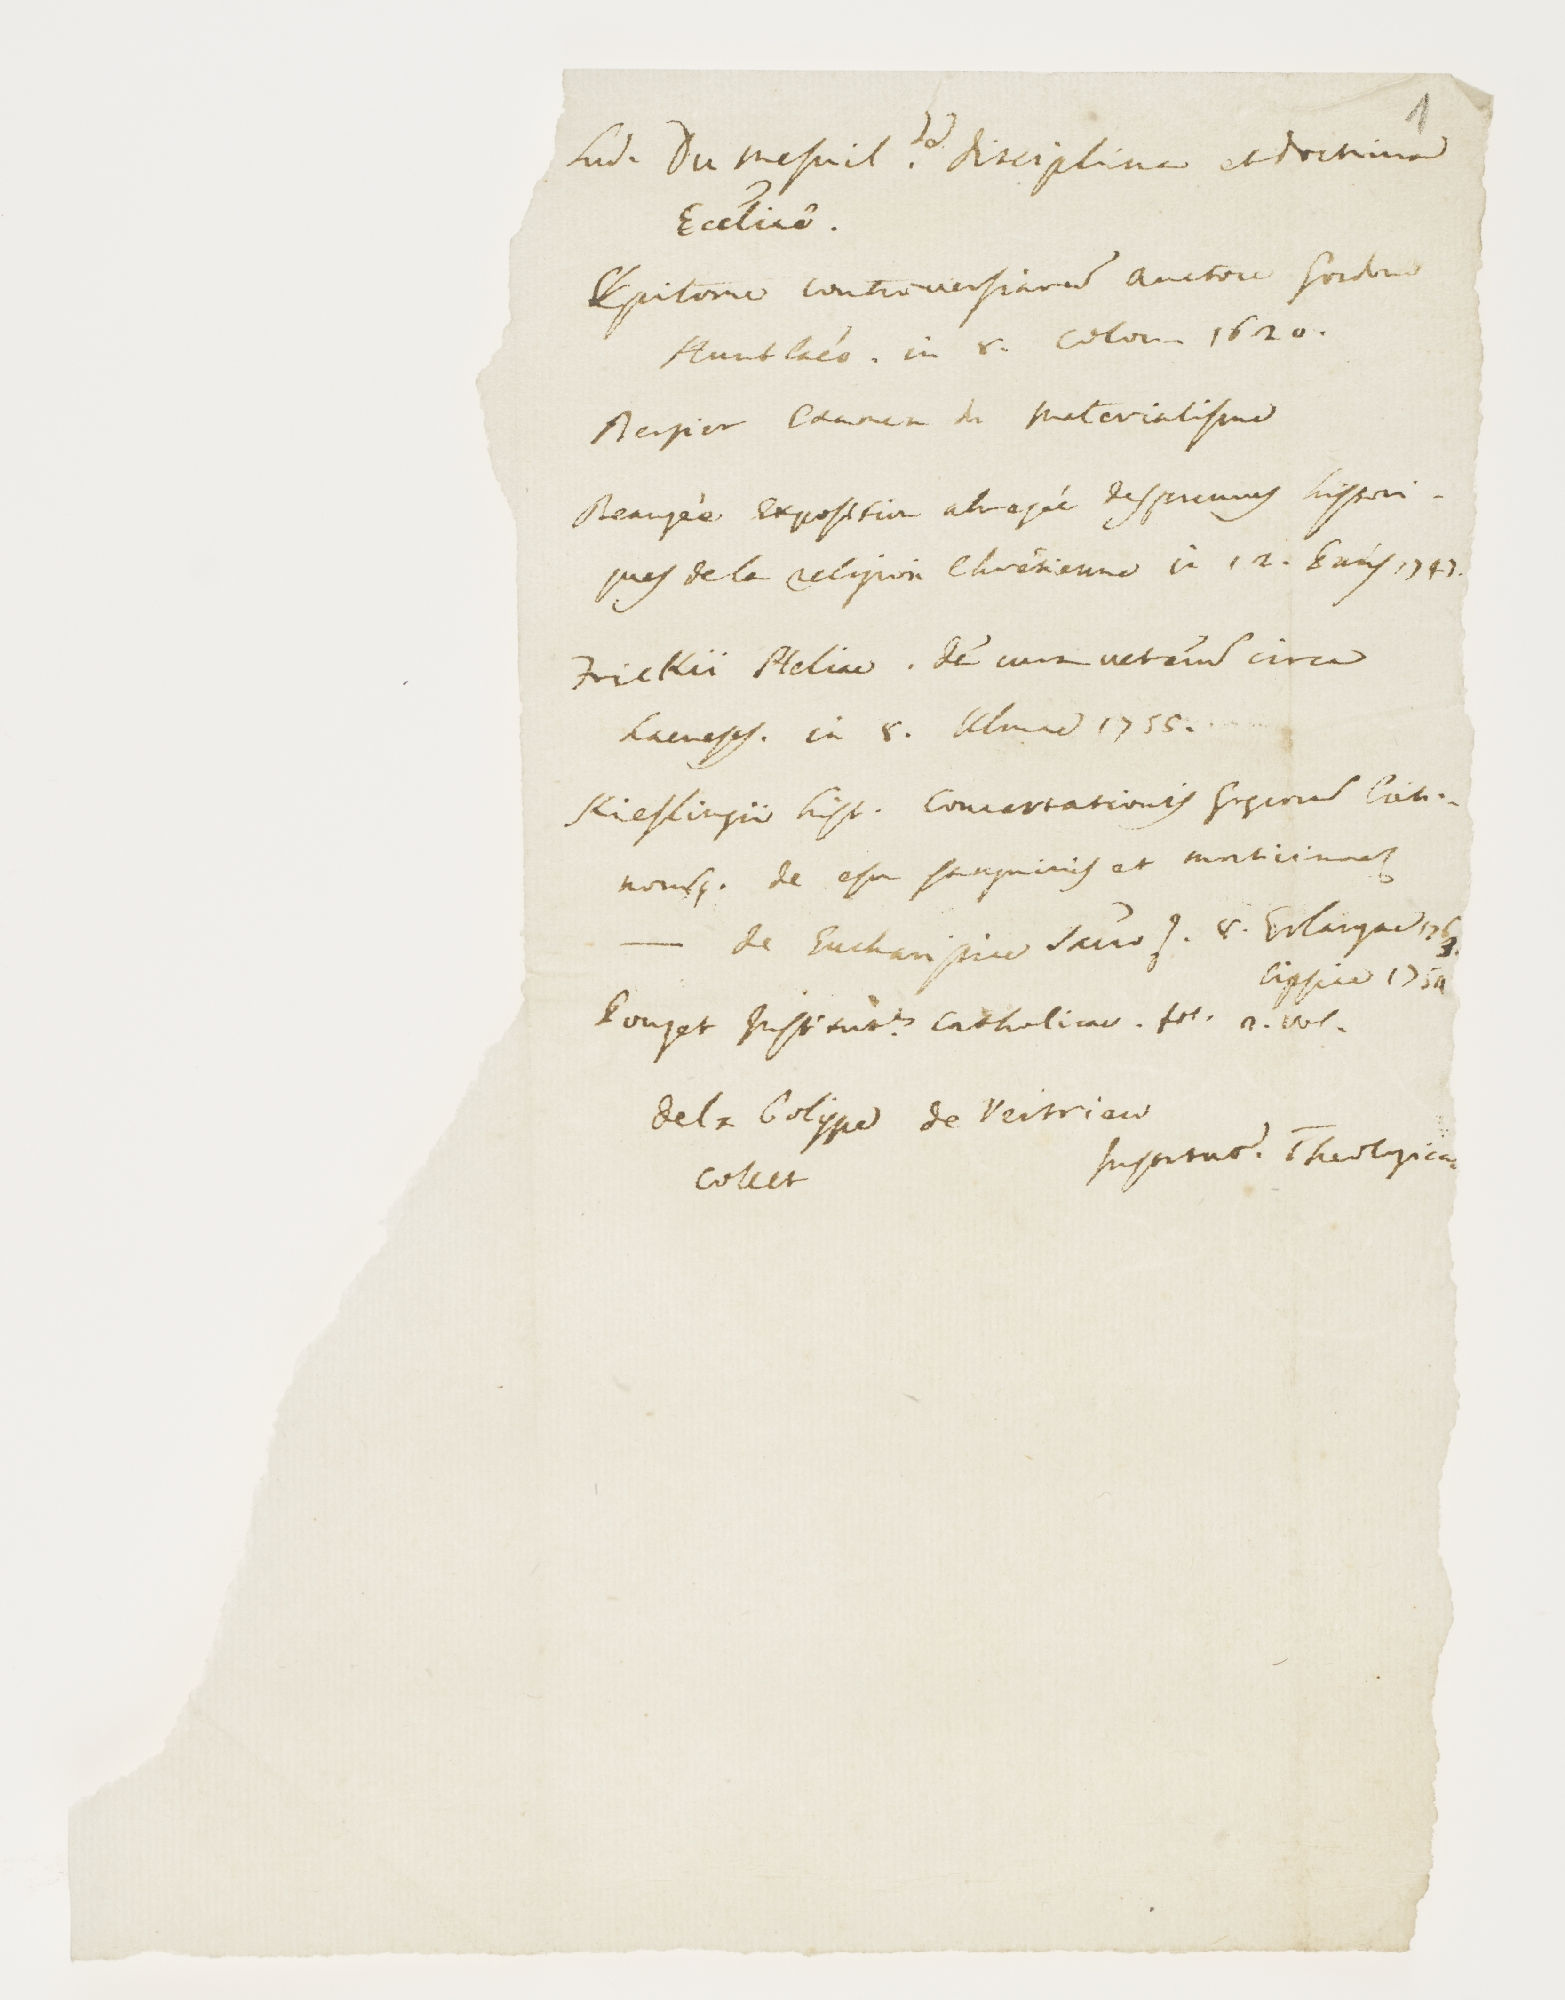 1
Lud. Du Mesnil. de disciplina et doctrina
Eccliae.
Epitome controversiarum auctore Gordono
Huntlaeo. in 8. Colon. 1620.
Bergier Examen du materialisme
Beauzée Exposition abregée des preuves histori-
ques de la religion Chretienne in 12. Paris 1747.
Frickii Aeliae. de cura veterum circa
haereses. in 8. Ulmae 1755.
Kieslingii hist. Concertationis Grecorum Latin-
norumq. de esu sanguinis et morticinae
— de Eucharistia 8. Erlangae 176
3.
Lipsiae 175
Pouget Institut. catholicae. fol. 2. vol.
de la Polype de Veitrieu
Collet Institut. Theologicae